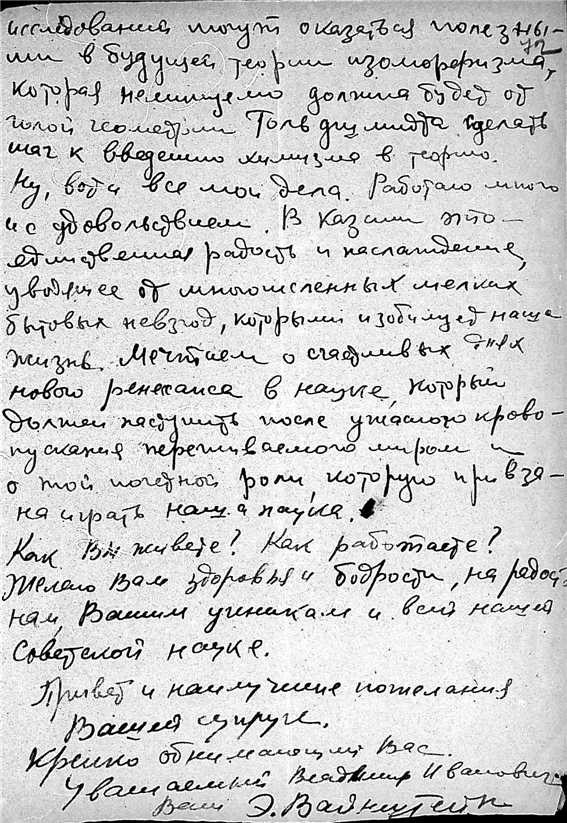 исследования могут оказаться полезны-
ми в будущей теории изоморфизма,
которая неминуемо должна будет от
голой геометрии Гольдшмидта сделать
шаг к введению химизма в теорию.
Ну, вот и все мои дела. Работаю много
и с удовольствием. В Казани это —
единственная радость и наслаждение,
уводящее от многочисленных мелких
бытовых невзгод, которыми изобилует наша
жизнь. Мечтаем о счастливых днях
нового ренесанса в науке, который
должен наступить после ужасного крово-
пускания переживаемого миром и
о той почетной роли которую призва-
на играть наша наука.
Как Вы живете? Как работаете?
Желаю Вам здоровья и бодрости, на радость
нам, Вашим ученикам и всей нашей
советской науке.
Привет и наилучшие пожелания
Вашей супруге.
Крепко обнимающий Вас.
Уважаемый Владимир Иванович
Ваш Э. Вайнштейн